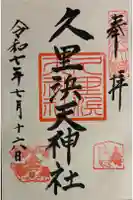 奉拝
久里浜天神社
令和七年七月十六日